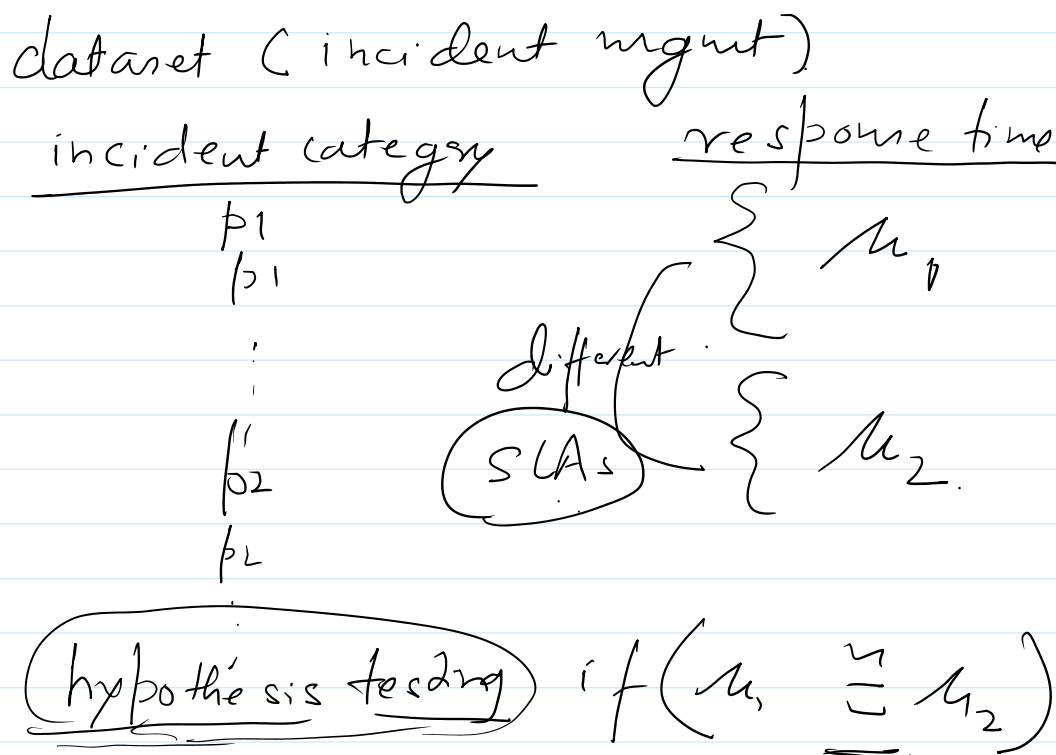 dataset (incident mgmt)
incident category response time
p1 μ1
p1
:
different
p2 SLAs μ2.
p2
hypothesis testing if (μ1 ≅ μ2)